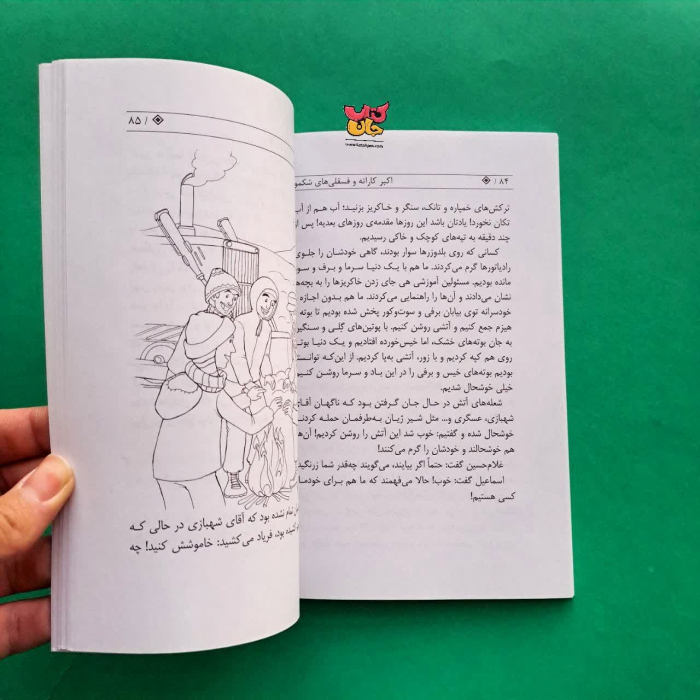 کتاب
جان
www.ketabjan.com
۸۴ /
اکبر کاراته و فسقلی‌های شکمو
ترکش‌های خمپاره و تانک، سنگر و خاکریز بزنید! آب هم از آب
تکان نخورد! یادتان باشد این روزها مقدمه‌ی روزهای بعدیه! پس از
چند دقیقه به تپه‌های کوچک و خاکی رسیدیم.
کسانی که روی بلدوزرها سوار بودند، گاهی خودشان را جلوی
رادیاتورها گرم می‌کردند. ما هم با یک دنیا سرما و برف و سو
مانده بودیم. مسئولین آموزشی هی جای زدن خاکریزها را به بچه‌ها
نشان می‌دادند و آن‌ها را راهنمایی می‌کردند. ما هم بدون اجازه
خودسرانه توی بیابان برفی و سوت‌وکور پخش شده بودیم تا بوته
هیزم جمع کنیم و آتشی روشن کنیم. با پوتین‌های گلی و سنگین
به جان بوته‌های خشک، اما خیس‌خورده افتادیم و یک دنیا بوته
روی هم کپه کردیم و با زور، آتشی به‌پا کردیم. از این‌که توانسته
بودیم بوته‌های خیس و برفی را در این باد و سرما روشن کنیم
خیلی خوشحال شدیم.
شعله‌های آتش در حال جان گرفتن بود که ناگهان آقای
شهبازی، عسگری و... مثل شیر ژیان به‌طرفمان حمله کردند
خوشحال شده و گفتیم: خوب شد این آتش را روشن کردیم! آن‌ها
هم خوشحالند و خودشان را گرم می‌کنند!
غلام‌حسین گفت: حتماً اگر بیایند، می‌گویند چه‌قدر شما زرنگید
اسماعیل گفت: خوب! حالا می‌فهمند که ما هم برای خودمان
کسی هستیم!
۸۵ /
تمام نشده بود که آقای شهبازی در حالی که
بود، فریاد می‌کشید: خاموشش کنید! چه